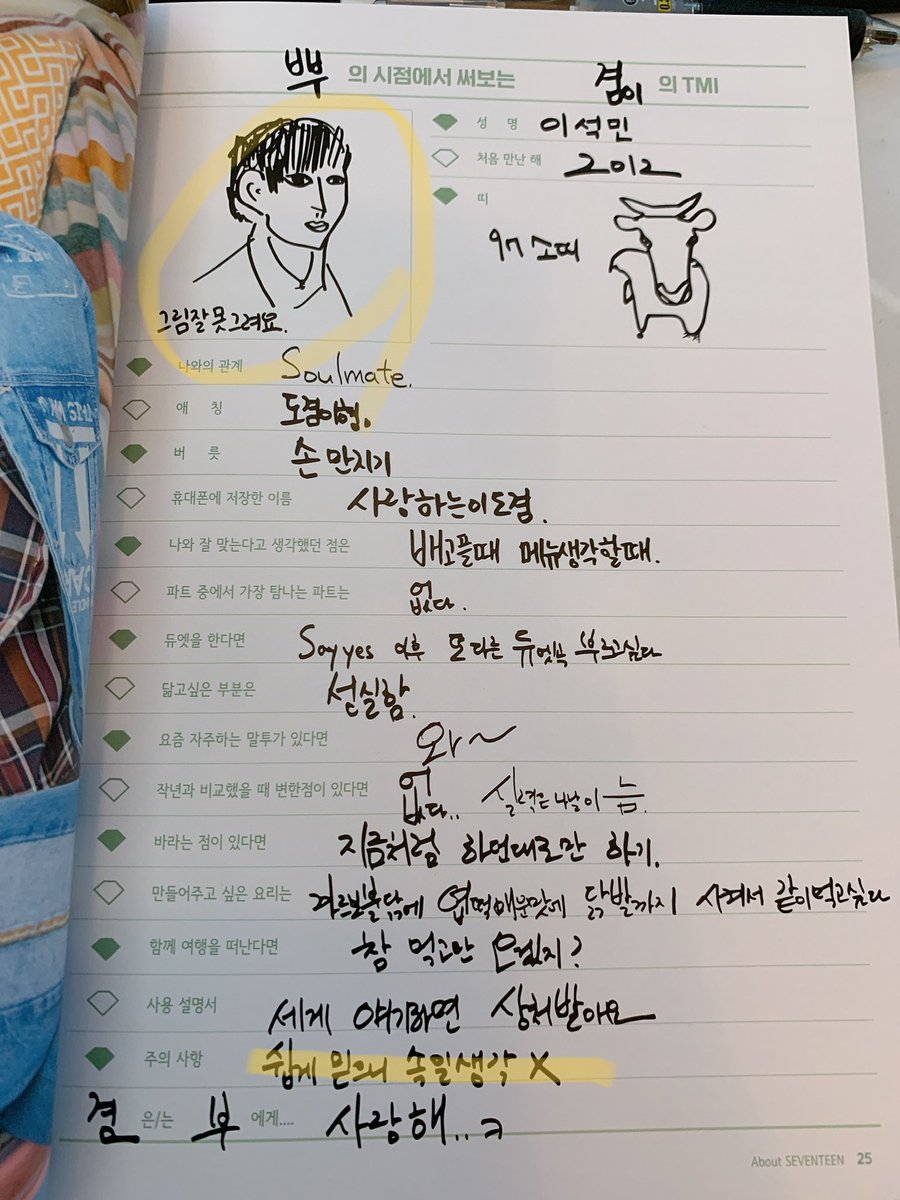 뿌 의 시점에서 써보는 겸이 의 TMI
성 명 이석민
처음 만난 해 2012
띠
97 소띠
그림 잘 못 그려요.
나와의 관계 Soulmate.
애 칭 도겸이형.
버 릇 손 만지기
휴대폰에 저장한 이름 사랑하는이도겸.
나와 잘 맞는다고 생각했던 점은 배고플때 메뉴생각할때.
파트 중에서 가장 탐나는 파트는 없다.
듀엣을 한다면 Say yes 이후 또다른 듀엣곡 부르고싶다
닮고싶은 부분은 성실함.
요즘 자주하는 말투가 있다면 와~
작년과 비교했을 때 변한점이 있다면 없다.. 실력은 나날이 늠.
바라는 점이 있다면 지금처럼 하던대로만 하기.
만들어주고 싶은 요리는 까르보불닭에 엽떡매운맛에 닭발까지 시켜서 같이먹고싶다
함께 여행을 떠난다면 참 먹고만 오겠지?
사용 설명서 세게 얘기하면 상처받아요
주의 사항 쉽게 믿으니 속일생각 X
겸 은/는 부 에게.... 사랑해..ㅋ
About SEVENTEEN 25